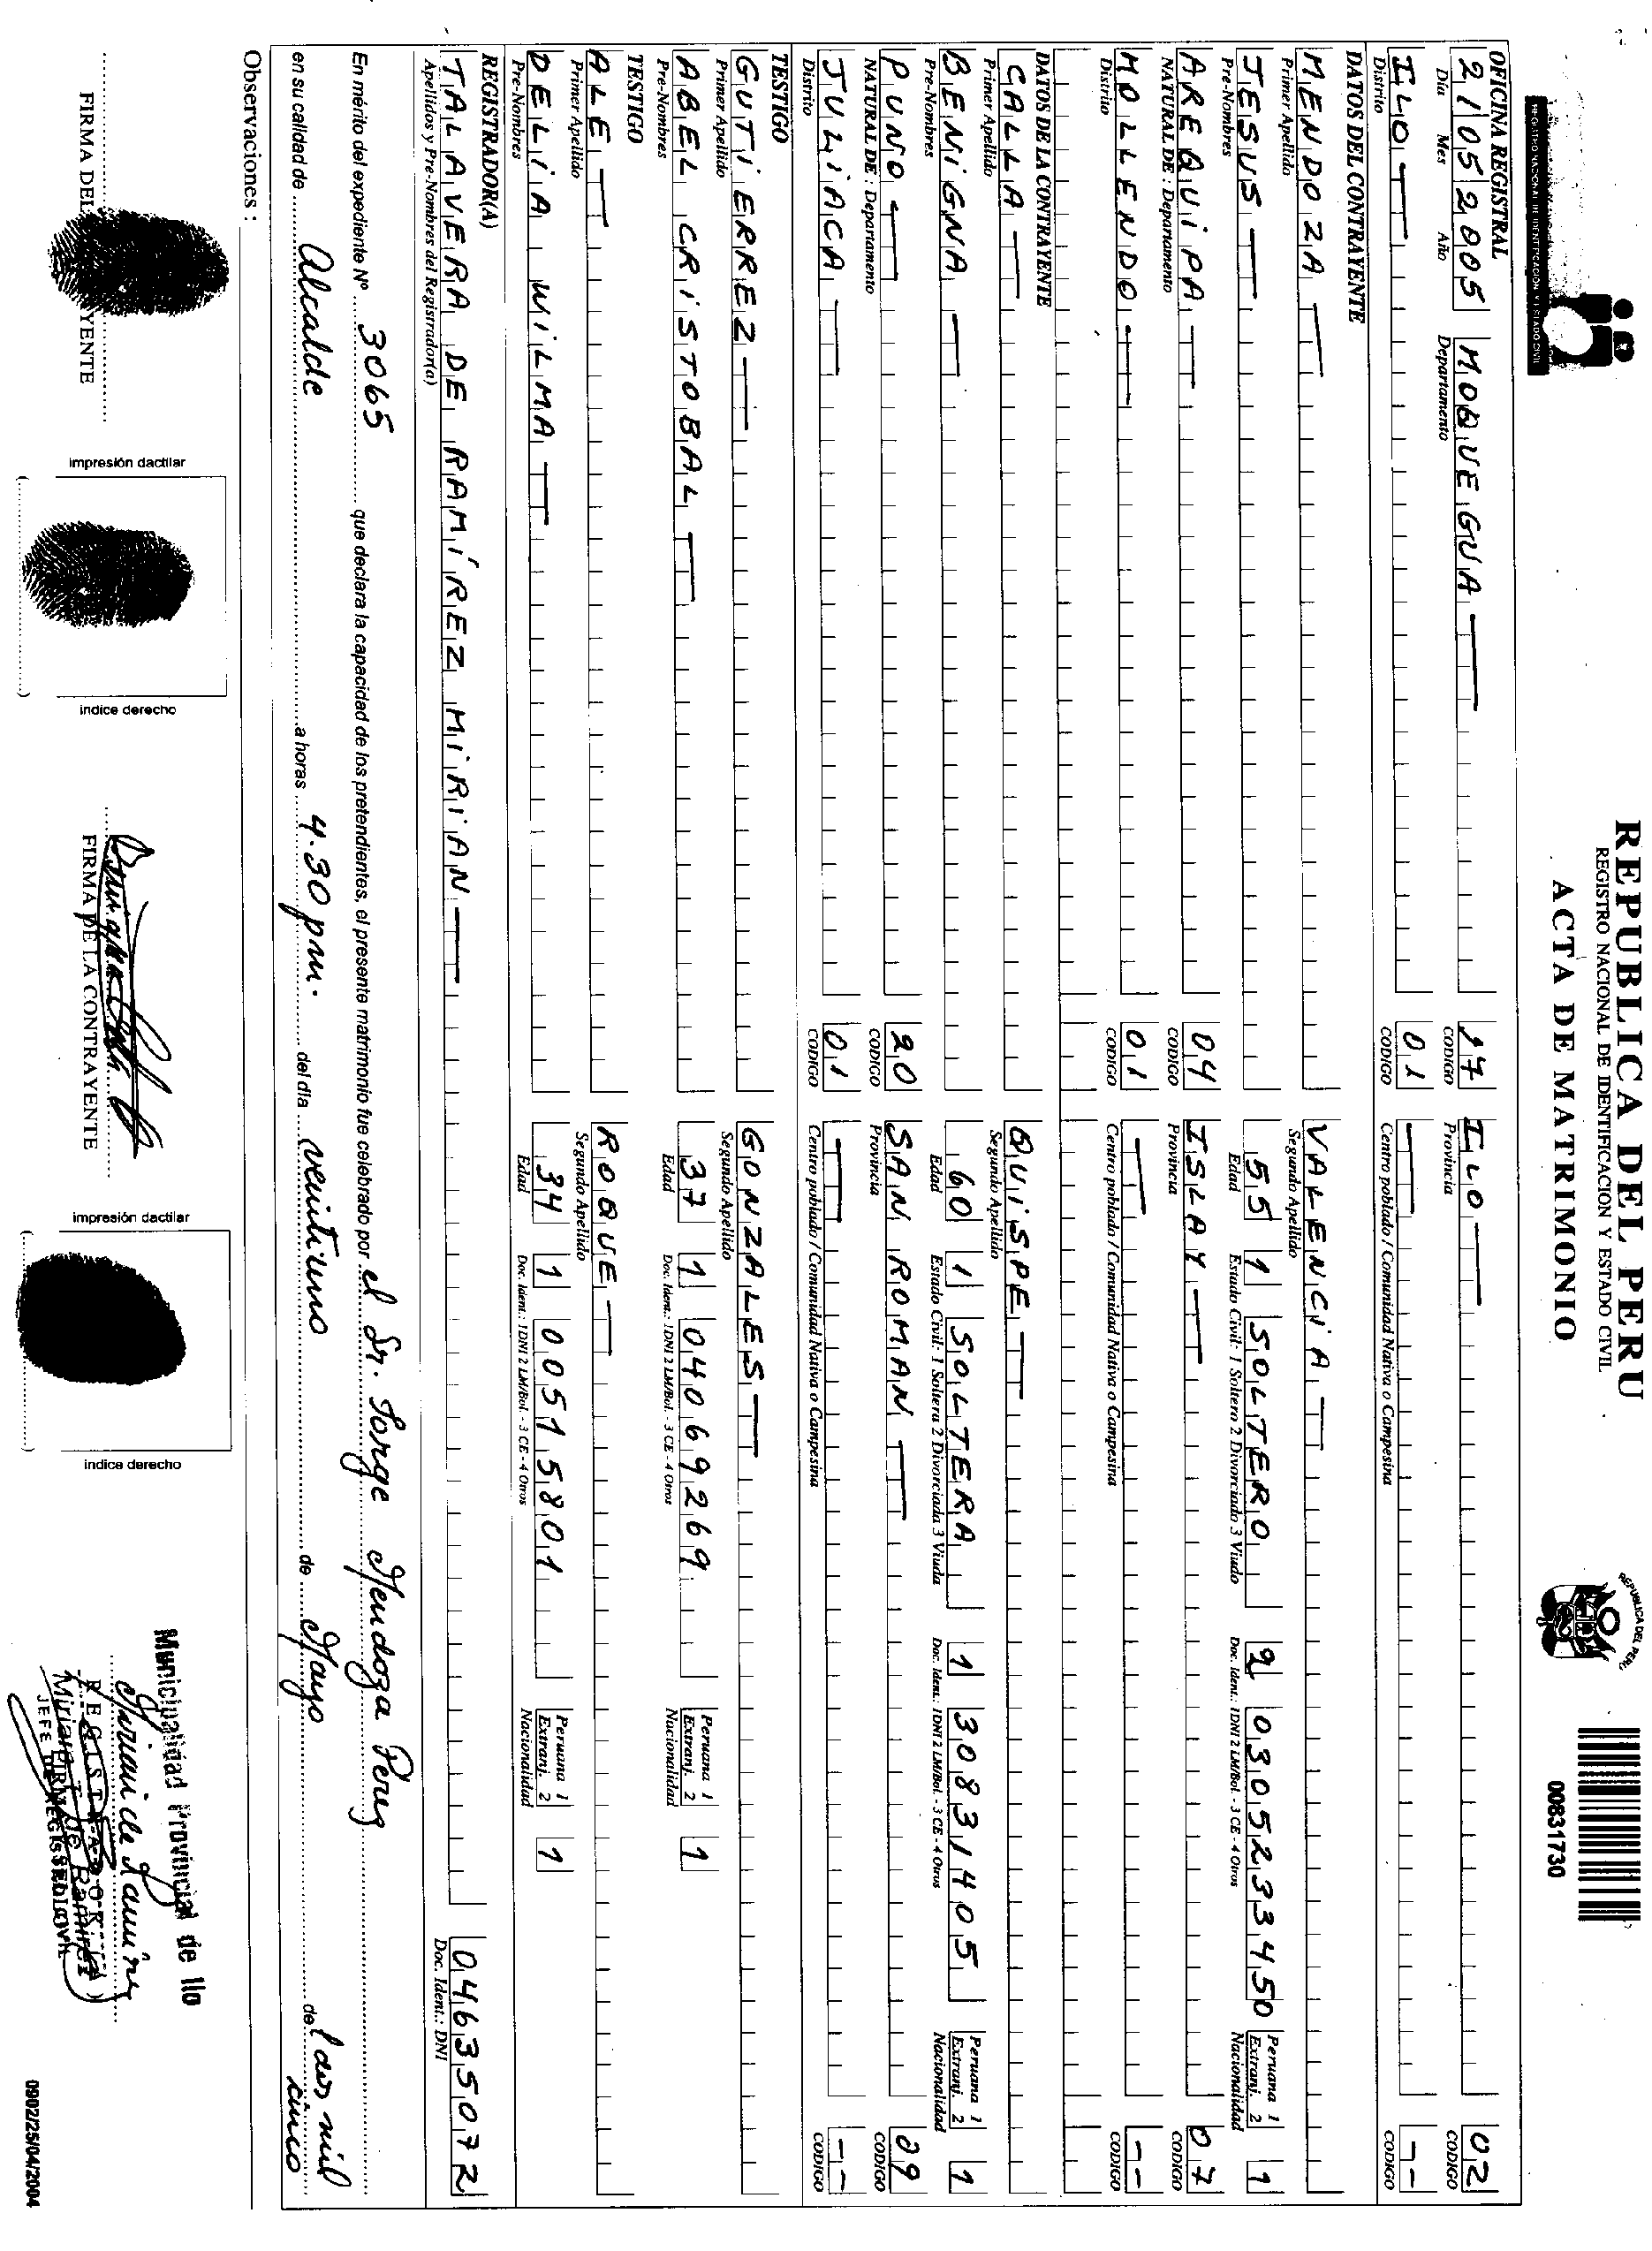 REPUBLICA DEL PERU
REGISTRO NACIONAL DE IDENTIFICACION Y ESTADO CIVIL
ACTA DE MATRIMONIO
REGISTRO NACIONAL DE IDENTIFICACION Y ESTADO CIVIL
REPUBLICA DEL PERU
00831730
OFICINA REGISTRAL
21 05 2005 MOQUEGUA 17 ILO 02
Día Mes Año Departamento CODIGO Provincia CODIGO
ILO 01 --
Distrito CODIGO Centro poblado / Comunidad Nativa o Campesina CODIGO
DATOS DEL CONTRAYENTE
MENDOZA VALENCiA
Primer Apellido Segundo Apellido
JESUS 55 1 SOLTERO 2 0305233450 Peruana 1 Extranj. 2 1
Pre-Nombres Edad Estado Civil: 1 Soltero 2 Divorciado 3 Viudo Doc. Ident.: 1DNI 2 LM/Bol. - 3 CE - 4 Otros Nacionalidad
AREQUiPA 04 ISLAY 07
NATURAL DE : Departamento CODIGO Provincia CODIGO
MOLLENDO 01 --
Distrito CODIGO Centro poblado / Comunidad Nativa o Campesina CODIGO
DATOS DE LA CONTRAYENTE
CALLA QUiSPE
Primer Apellido Segundo Apellido
BENiGNA 60 1 SOLTERA 1 30831405 Peruana 1 Extranj. 2 1
Pre-Nombres Edad Estado Civil: 1 Soltera 2 Divorciada 3 Viuda Doc. Ident.: 1DNI 2 LM/Bol. - 3 CE - 4 Otros Nacionalidad
PUNO 20 SAN ROMAN 09
NATURAL DE : Departamento CODIGO Provincia CODIGO
JULiACA 01 --
Distrito CODIGO Centro poblado / Comunidad Nativa o Campesina CODIGO
TESTIGO
GUTiERREZ GONZALES
Primer Apellido Segundo Apellido
ABEL CRiSTOBAL 37 1 04069269 Peruana 1 Extranj. 2 1
Pre-Nombres Edad Doc. Ident.: 1DNI 2 LM/Bol. - 3 CE - 4 Otros Nacionalidad
TESTIGO
ALE ROQUE
Primer Apellido Segundo Apellido
DELiA WiLMA 34 1 00515801 Peruana 1 Extranj. 2 1
Pre-Nombres Edad Doc. Ident.: 1DNI 2 LM/Bol. - 3 CE - 4 Otros Nacionalidad
REGISTRADOR(A)
TALAVERA DE RAMÍREZ MiRiAN 04635072
Apellidos y Pre-Nombres del Registrador(a) Doc. Ident.: DNI
En mérito del expediente Nº 3065 que declara la capacidad de los pretendientes, el presente matrimonio fue celebrado por el Sr. Jorge Mendoza Perez
en su calidad de Alcalde a horas 4.30 pm. del día veintiuno de Mayo del dos mil cinco
Observaciones :
FIRMA DEL YENTE
impresión dactilar
indice derecho
FIRMA DE LA CONTRAYENTE
impresión dactilar
indice derecho
Municipalidad Provincial de Ilo
REGISTRADOR(A)
Mirian T. de Ramirez
JEFE DE REGISTRO CIVIL
0902/25/04/2004